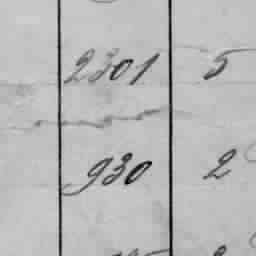 2301 5
930 2